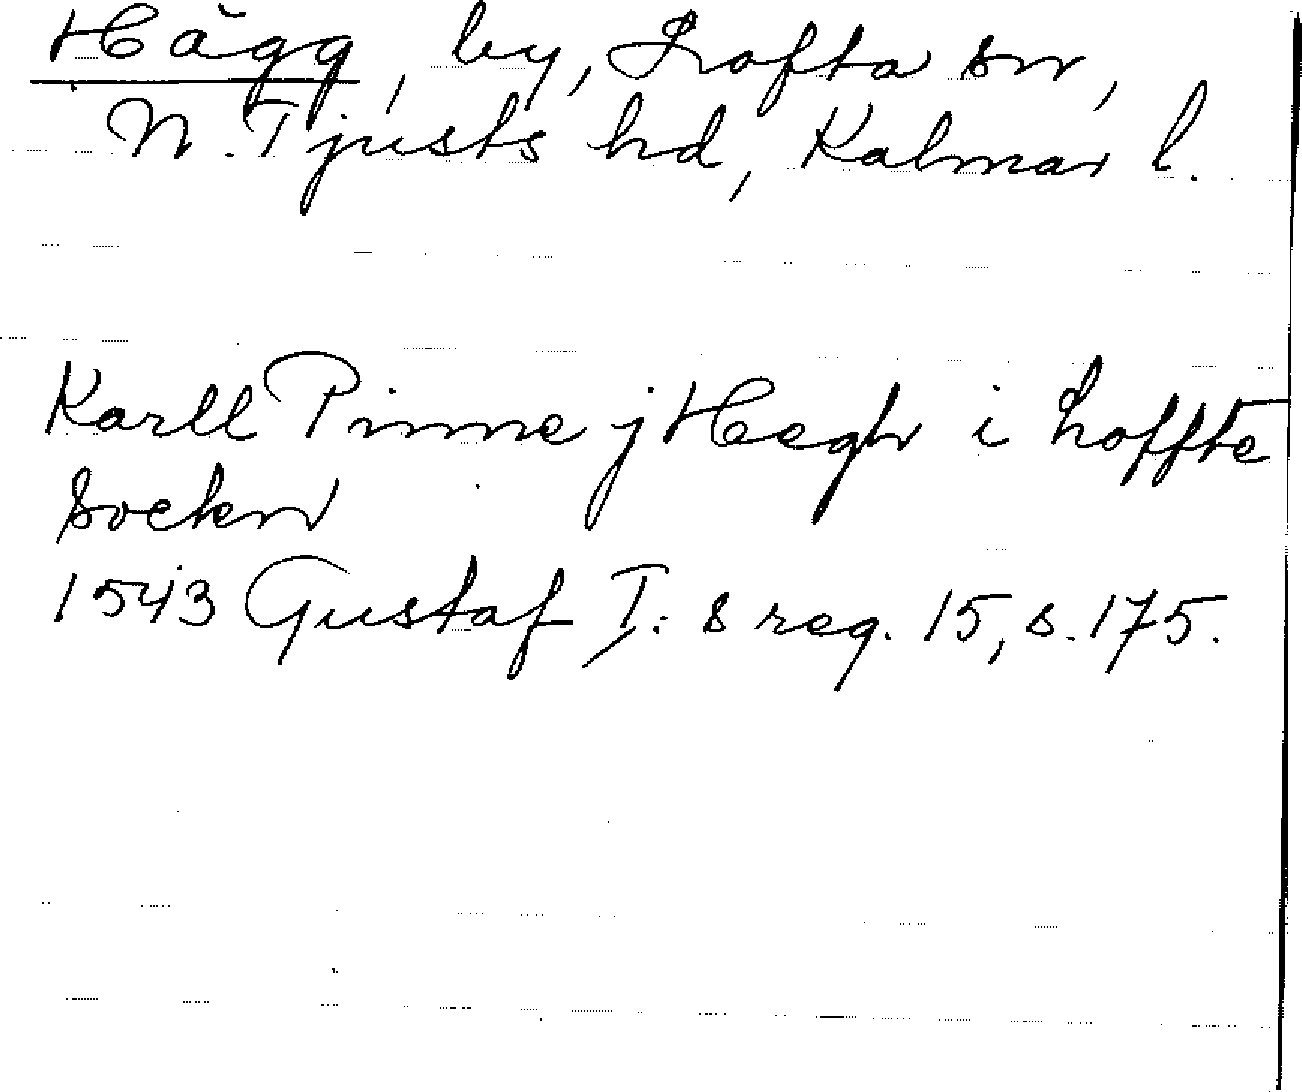 Hägg, by, Lofta sn,
N. Tjusts hd, Kalmar l.
Karll Pinne j Hægh i Loffte
Sockn
1543 Gustaf I:s reg. 15, s. 175.